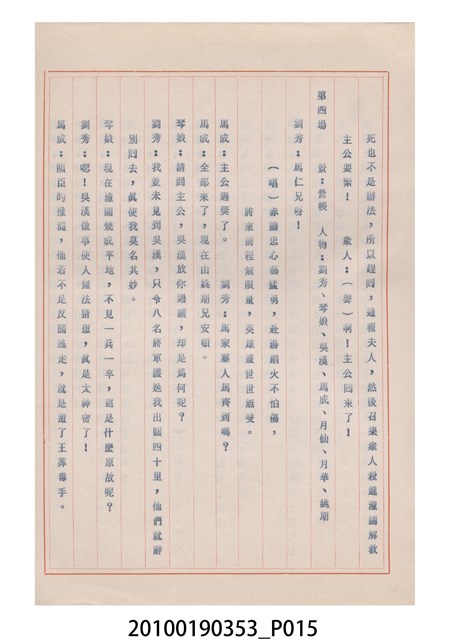 死也不是辦法，所以趕回，通報夫人，然後召集衆人殺進潼關解救
主公要緊！　衆人：（聲）啊！主公回來了！
第四場　景：營帳　人物：劉秀、琴娘、吳漢、馬成、月仙、月華、姚期
劉秀：馬仁兄呀！
（唱）赤膽忠心勇猛勇，赴湯蹈火不怕傷，
將來前程無限量，英雄蓋世世渝受。
馬成：主公過獎了。　劉秀：馬家寨人馬齊到嗎？
馬成：全部來了，現在由姚期兄安頓。
琴娘：請問主公，吳漢放你過關，却是爲何呢？
劉秀：我並未見到吳漢，只令八名將軍護送我出關四十里，他們就辭
別回去，眞使我莫名其妙。
琴娘：現在潼關燒成平地，不見一兵一卒，這是什麼原故呢？
劉秀：嗯！吳漢做事使人無法猜想，眞是太神密了！
馬成：照臣的推測，他若不是反關逃走，就是遭了王莽毒手。
20100190353_P015